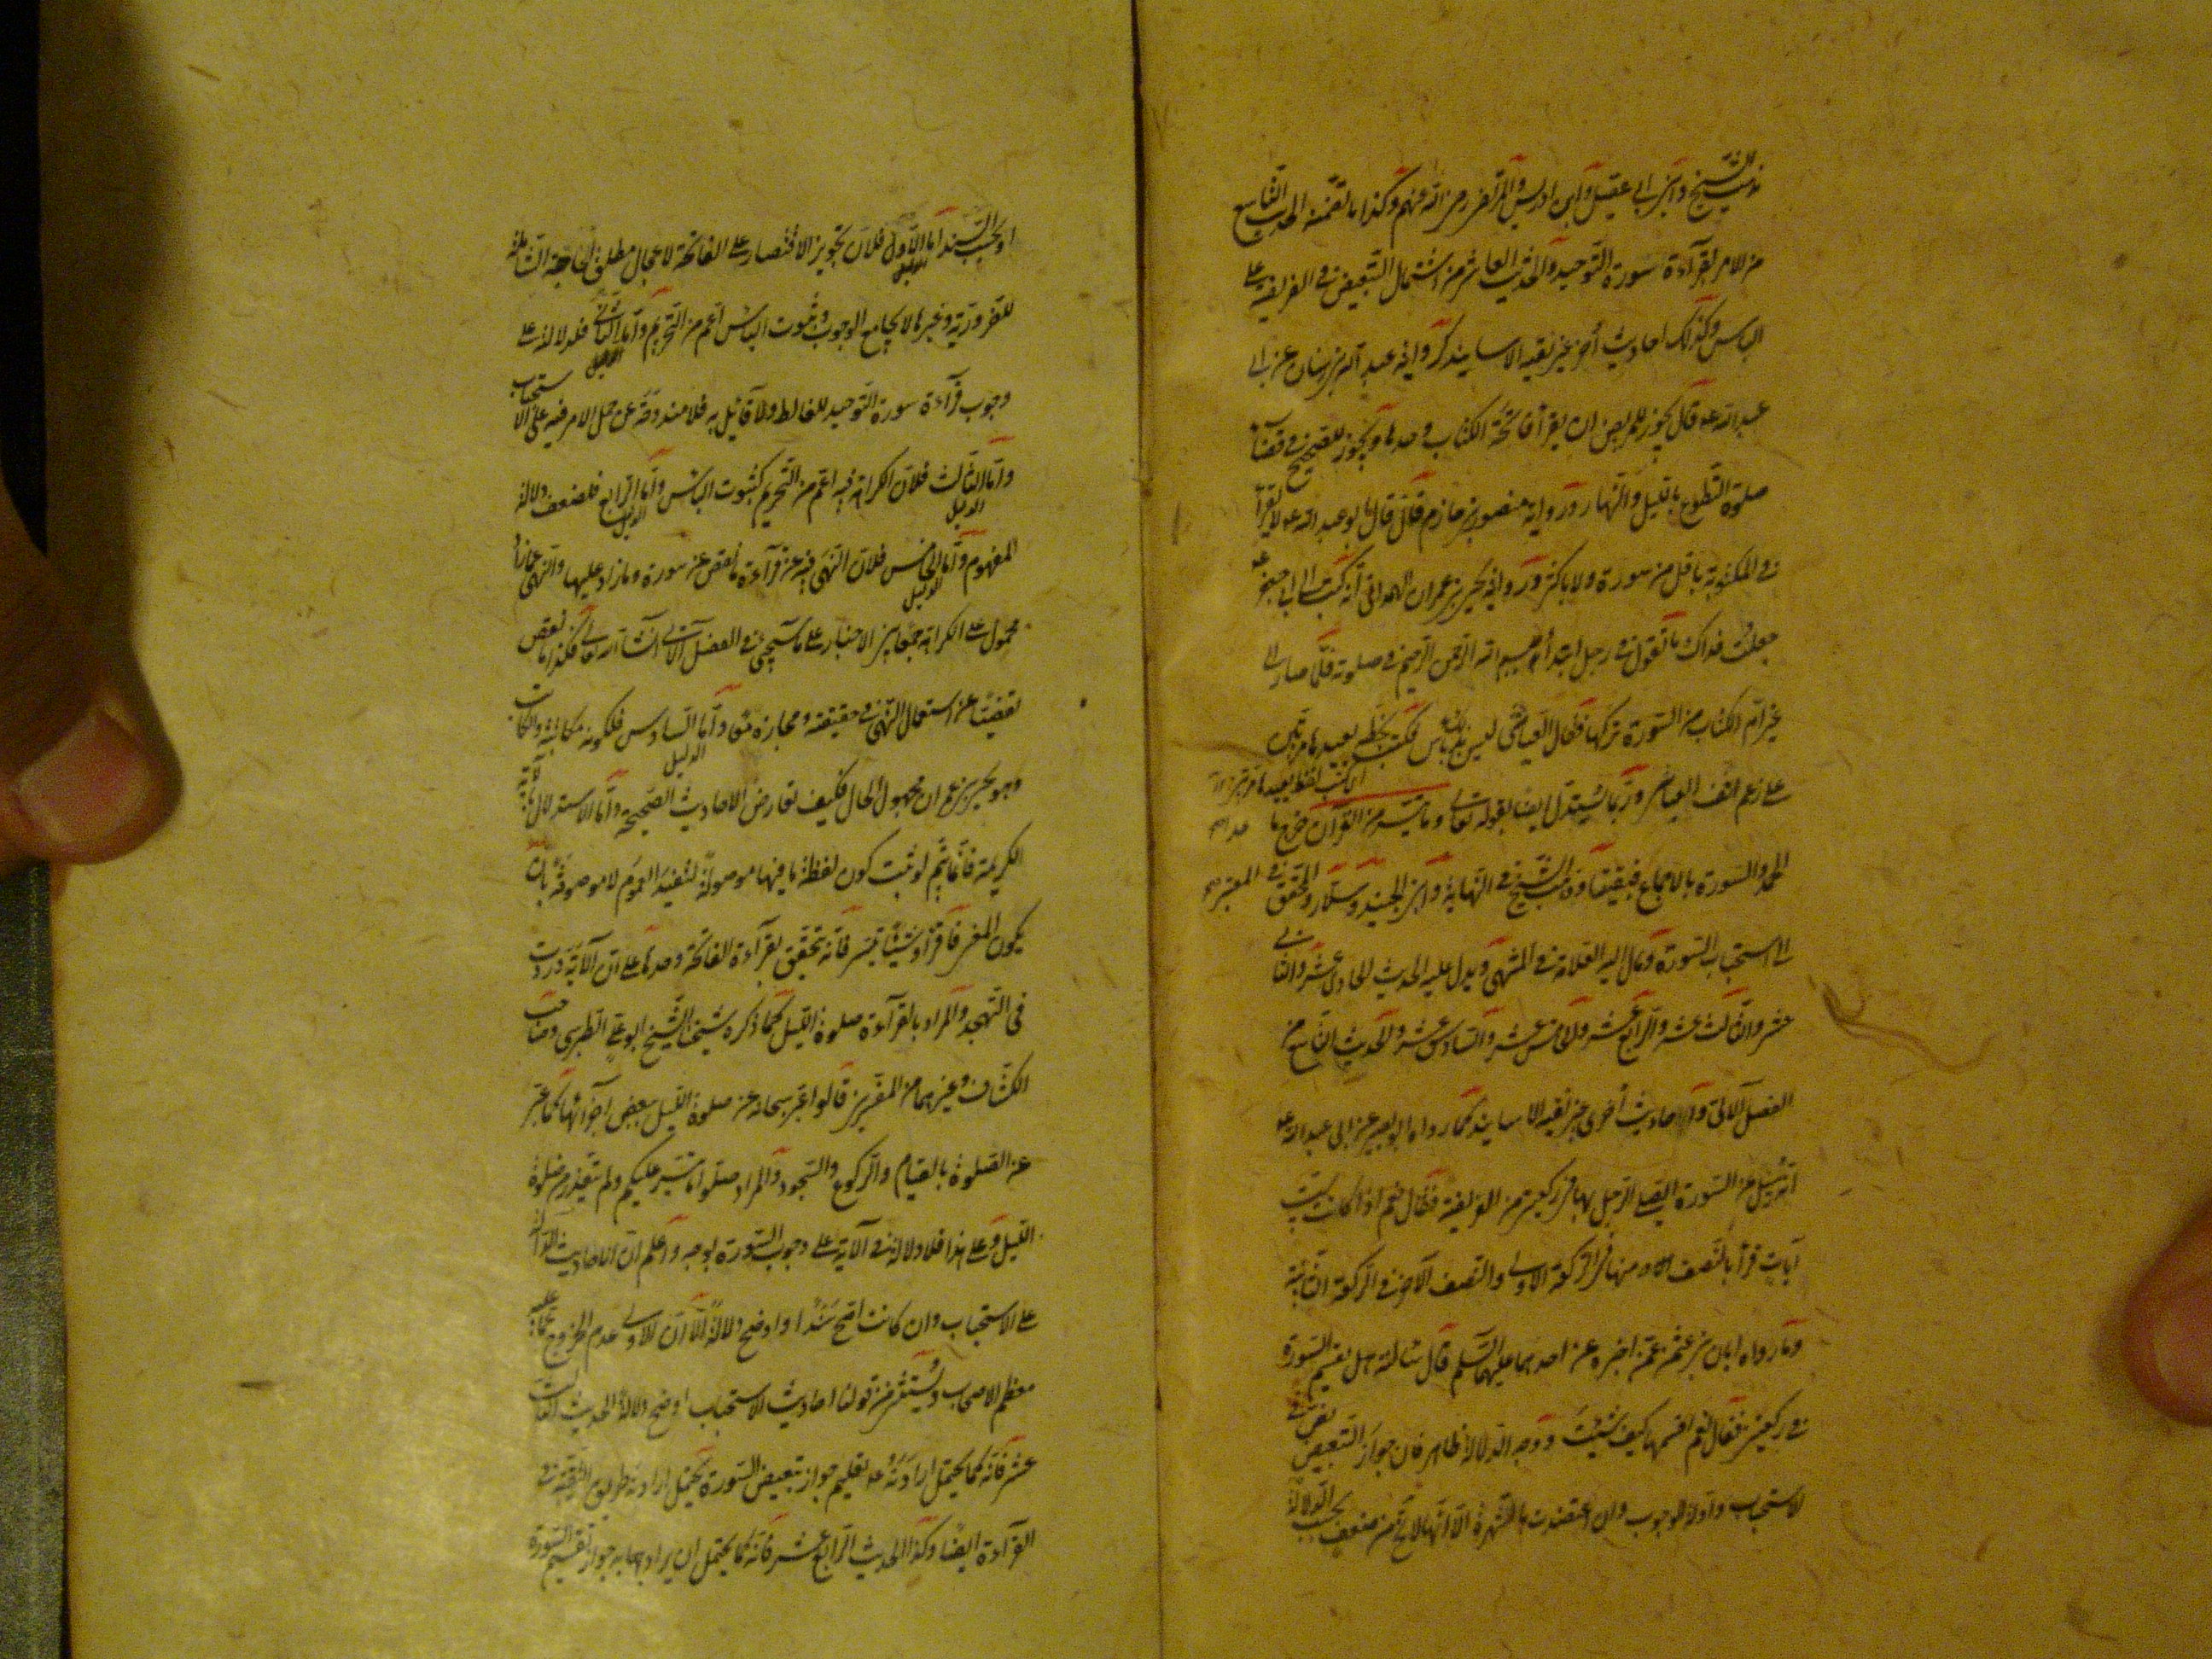 الشيخ وابن ابي عقيل وابن ادريس والمرتضى رضي الله عنهم وكذا ما تضمنه الحديث التاسع
من الامر بقراءة سورة التوحيد والحديث العاشر من اشتمال التبعيض في الفريضة على
الباس وكذلك احاديث أخر غير نقية الاسانيد كرواية عبد الله بن سنان عن ابي
عبد الله عه قال يجوز للمريض ان يقرأ فاتحة الكتاب وحدها ويجوز للصحيح في قضاء
صلوة التطوع بالليل والنهار ورواية منصور بن حازم قال قال ابو عبد الله عه لا يقرأ
في المكتوبة باقل من سورة ولا باكثر ورواية يحيى بن عمران الهمداني انه كتب الى ابي جعفر عه
جعلت فداك ما تقول في رجل ابتدأ ببسم الله الرحمن الرحيم في صلوته فلما صار الى
غير ام الكتاب من السورة تركها فقال العياشي ليس بذلك باس فكتب بخطه يعيدها مرتين
على رغم انف العياشي وربما يستدل ايضا بقوله تعالى وما تيسر من القرآن خرج ما
الحمد والسورة بالاجماع فبقيتا وذهب الشيخ في النهاية وابن الجنيد وسلار والمحقق في المعتبر
الى استحباب السورة ومال اليه العلامة في المنتهى ويدل عليه الحديث الحادي عشر والثاني
عشر والثالث عشر والرابع عشر والخامس عشر والسادس عشر والحديث التاسع من
الفصل الآتي والاحاديث أخرى غير نقية الاسانيد كما رواه ابو بصير عن ابي عبد الله عه
انه سئل عن السورة ايصلي الرجل بها في ركعتين من الفريضة فقال نعم اذا كانت ست
آيات قرأ بالنصف منها في الركعة الاولى والنصف الآخر في الركعة الثانية
وما رواه ابان بن عثمن عمن اخبره عن احدهما عليهما السلم قال سالته هل تقسم السورة
في ركعتين فقال نعم اقسمها كيف شئت ووجه الدلالة ظاهر فان جواز التبعيض نص في
الاستحباب وادلة الوجوب وان اعتضدت بالشهرة الا انها لا تخ من ضعف بحسب الدلالة
او بحسب السند اما الاول فلان تجويز الاقتصار على الفاتحة لاعجال مطلق الحاجة الشاملة
للضرورية وغيرها لا يجامع الوجوب وثبوت الباس اعم من التحريم واما الثاني فلدلالته على
وجوب قراءة سورة التوحيد للغالط ولا قائل به فلا مندوحة عن حمل الامر فيه على الاستحباب
واما الثالث فلان الكراهة فيه اعم من التحريم كثبوت الباس واما الرابع فلضعف دلالة
المفهوم واما الخامس فلان النهي فيه عن قراءة ما نقص عن سورة وما زاد عليها والنهي عما زاد
محمول على الكراهة جمعا بين الاخبار على ما سيجيء في الفصل الآتي انشاء الله تعالى فكذا ما نقص
تفصيا عن استعمال النهي في حقيقته ومجازه معا واما السادس فلكونه مكاتبة والكاتب
وهو يحيى بن عمران مجهول الحال فكيف تعارض الاحاديث الصحيحة واما الاستدلال بالآية
الكريمة فانما يتم لو ثبت كون لفظة ما فيها موصولة لتفيد العموم لا موصوفة بان
يكون المعنى فاقرأوا شيئا تيسر فانه تحقق بقراءة الفاتحة وحدها على ان الآية وردت
في التهجد والمراد بالقراءة صلوة الليل كما ذكره شيخنا الشيخ ابو علي الطبرسي وصاحب
الكشاف وغيرهما من المفسرين قالوا عبر سبحانه عن صلوة الليل ببعض اجزائها كما عبر
عن الصلوة بالقيام والركوع والسجود والمراد صلوا ما تيسر عليكم ولم يتعذر من صلوة
الليل وعلى هذا فلا دلالة في الآية على وجوب السورة بوجه واعلم ان الاحاديث الدالة
على الاستحباب وان كانت اصح سندا واوضح دلالة الا ان الاولى عدم الخروج عما عليه
معظم الاصحاب ويستثنى من قولنا احاديث الاستحباب اوضح دلالة الحديث الثالث
عشر فانه كما يحتمل ارادته عه تعليم جواز تبعيض السورة يحتمل ارادته طريق التقية في
القراءة ايضا وكذا الحديث الرابع عشر فانه كما يحتمل ان يراد بجوابه جواز تقسيم السورة